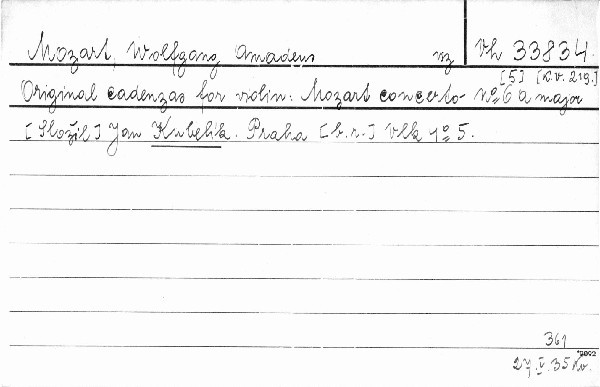 Mozart, Wolfgang Amadeus vz Vh 33834.
[5] [K.V. 219.]
Original cadenzas for violin: Mozart concerto no 6 a major
[Složil] Jan Kubelík. Praha [b.r.] Vlk 1o 5.
361
*8092
27.V.35 Kv.